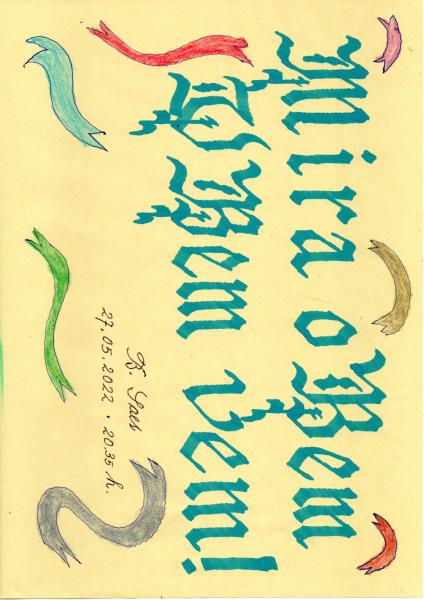 Mira o Bem
Bem vem!
B. Saes
27.05.2022 · 20.35 h.